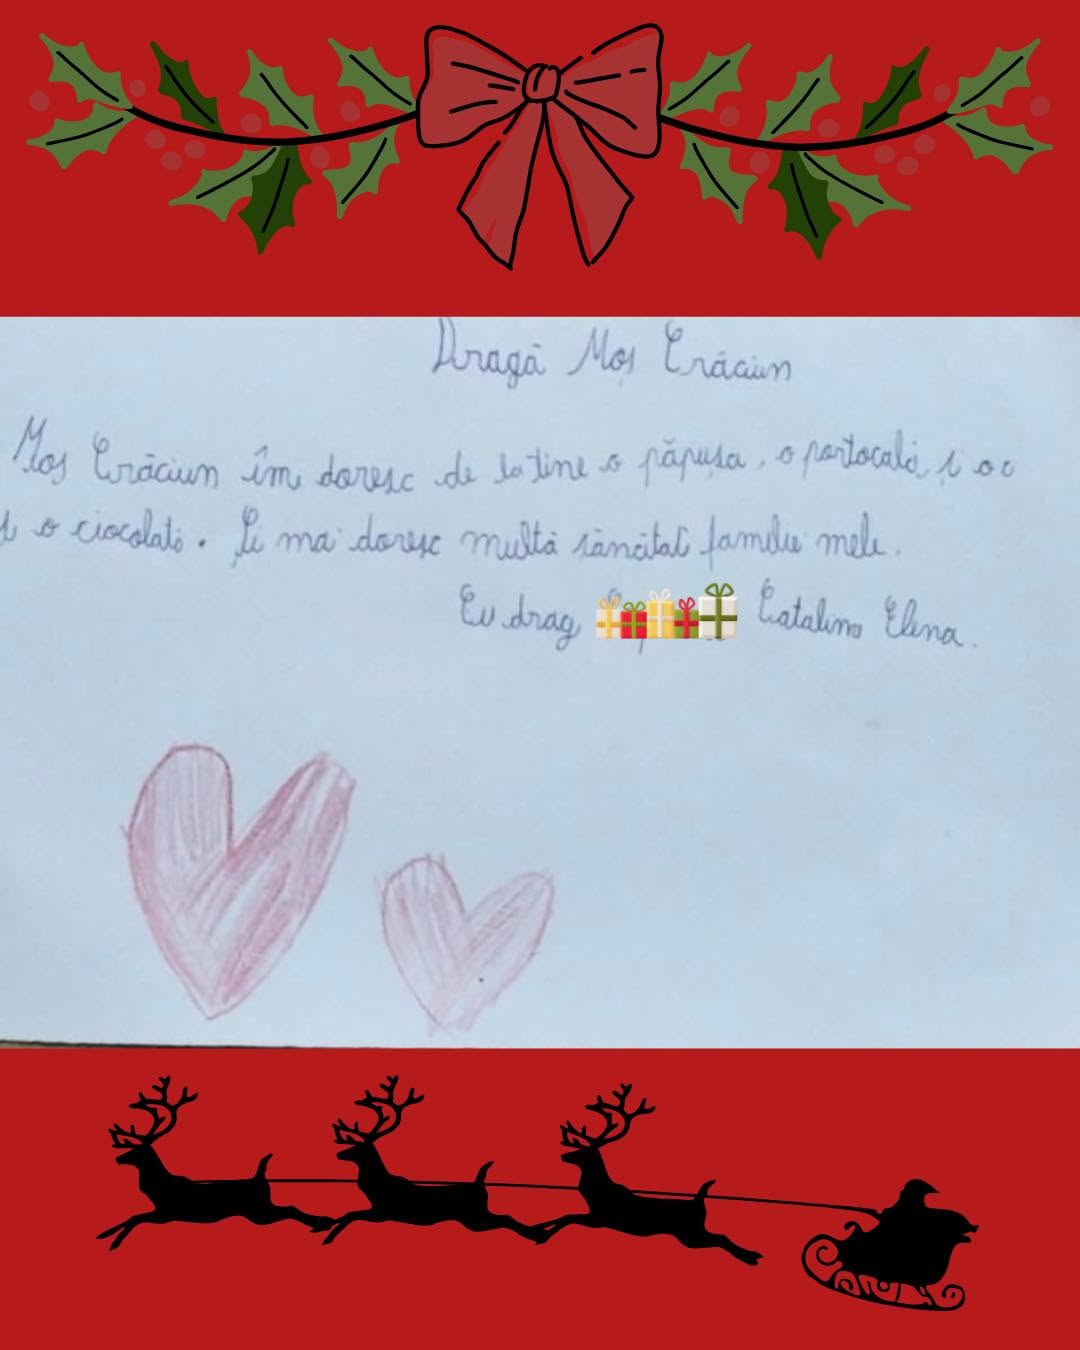 Dragă Moș Crăciun
Moș Crăciun îm doresc de la tine o păpușa, o portocală, și o c
și o ciocolată. Și mai doresc multă sănătat familie mele.
Cu drag Catalina Elena.